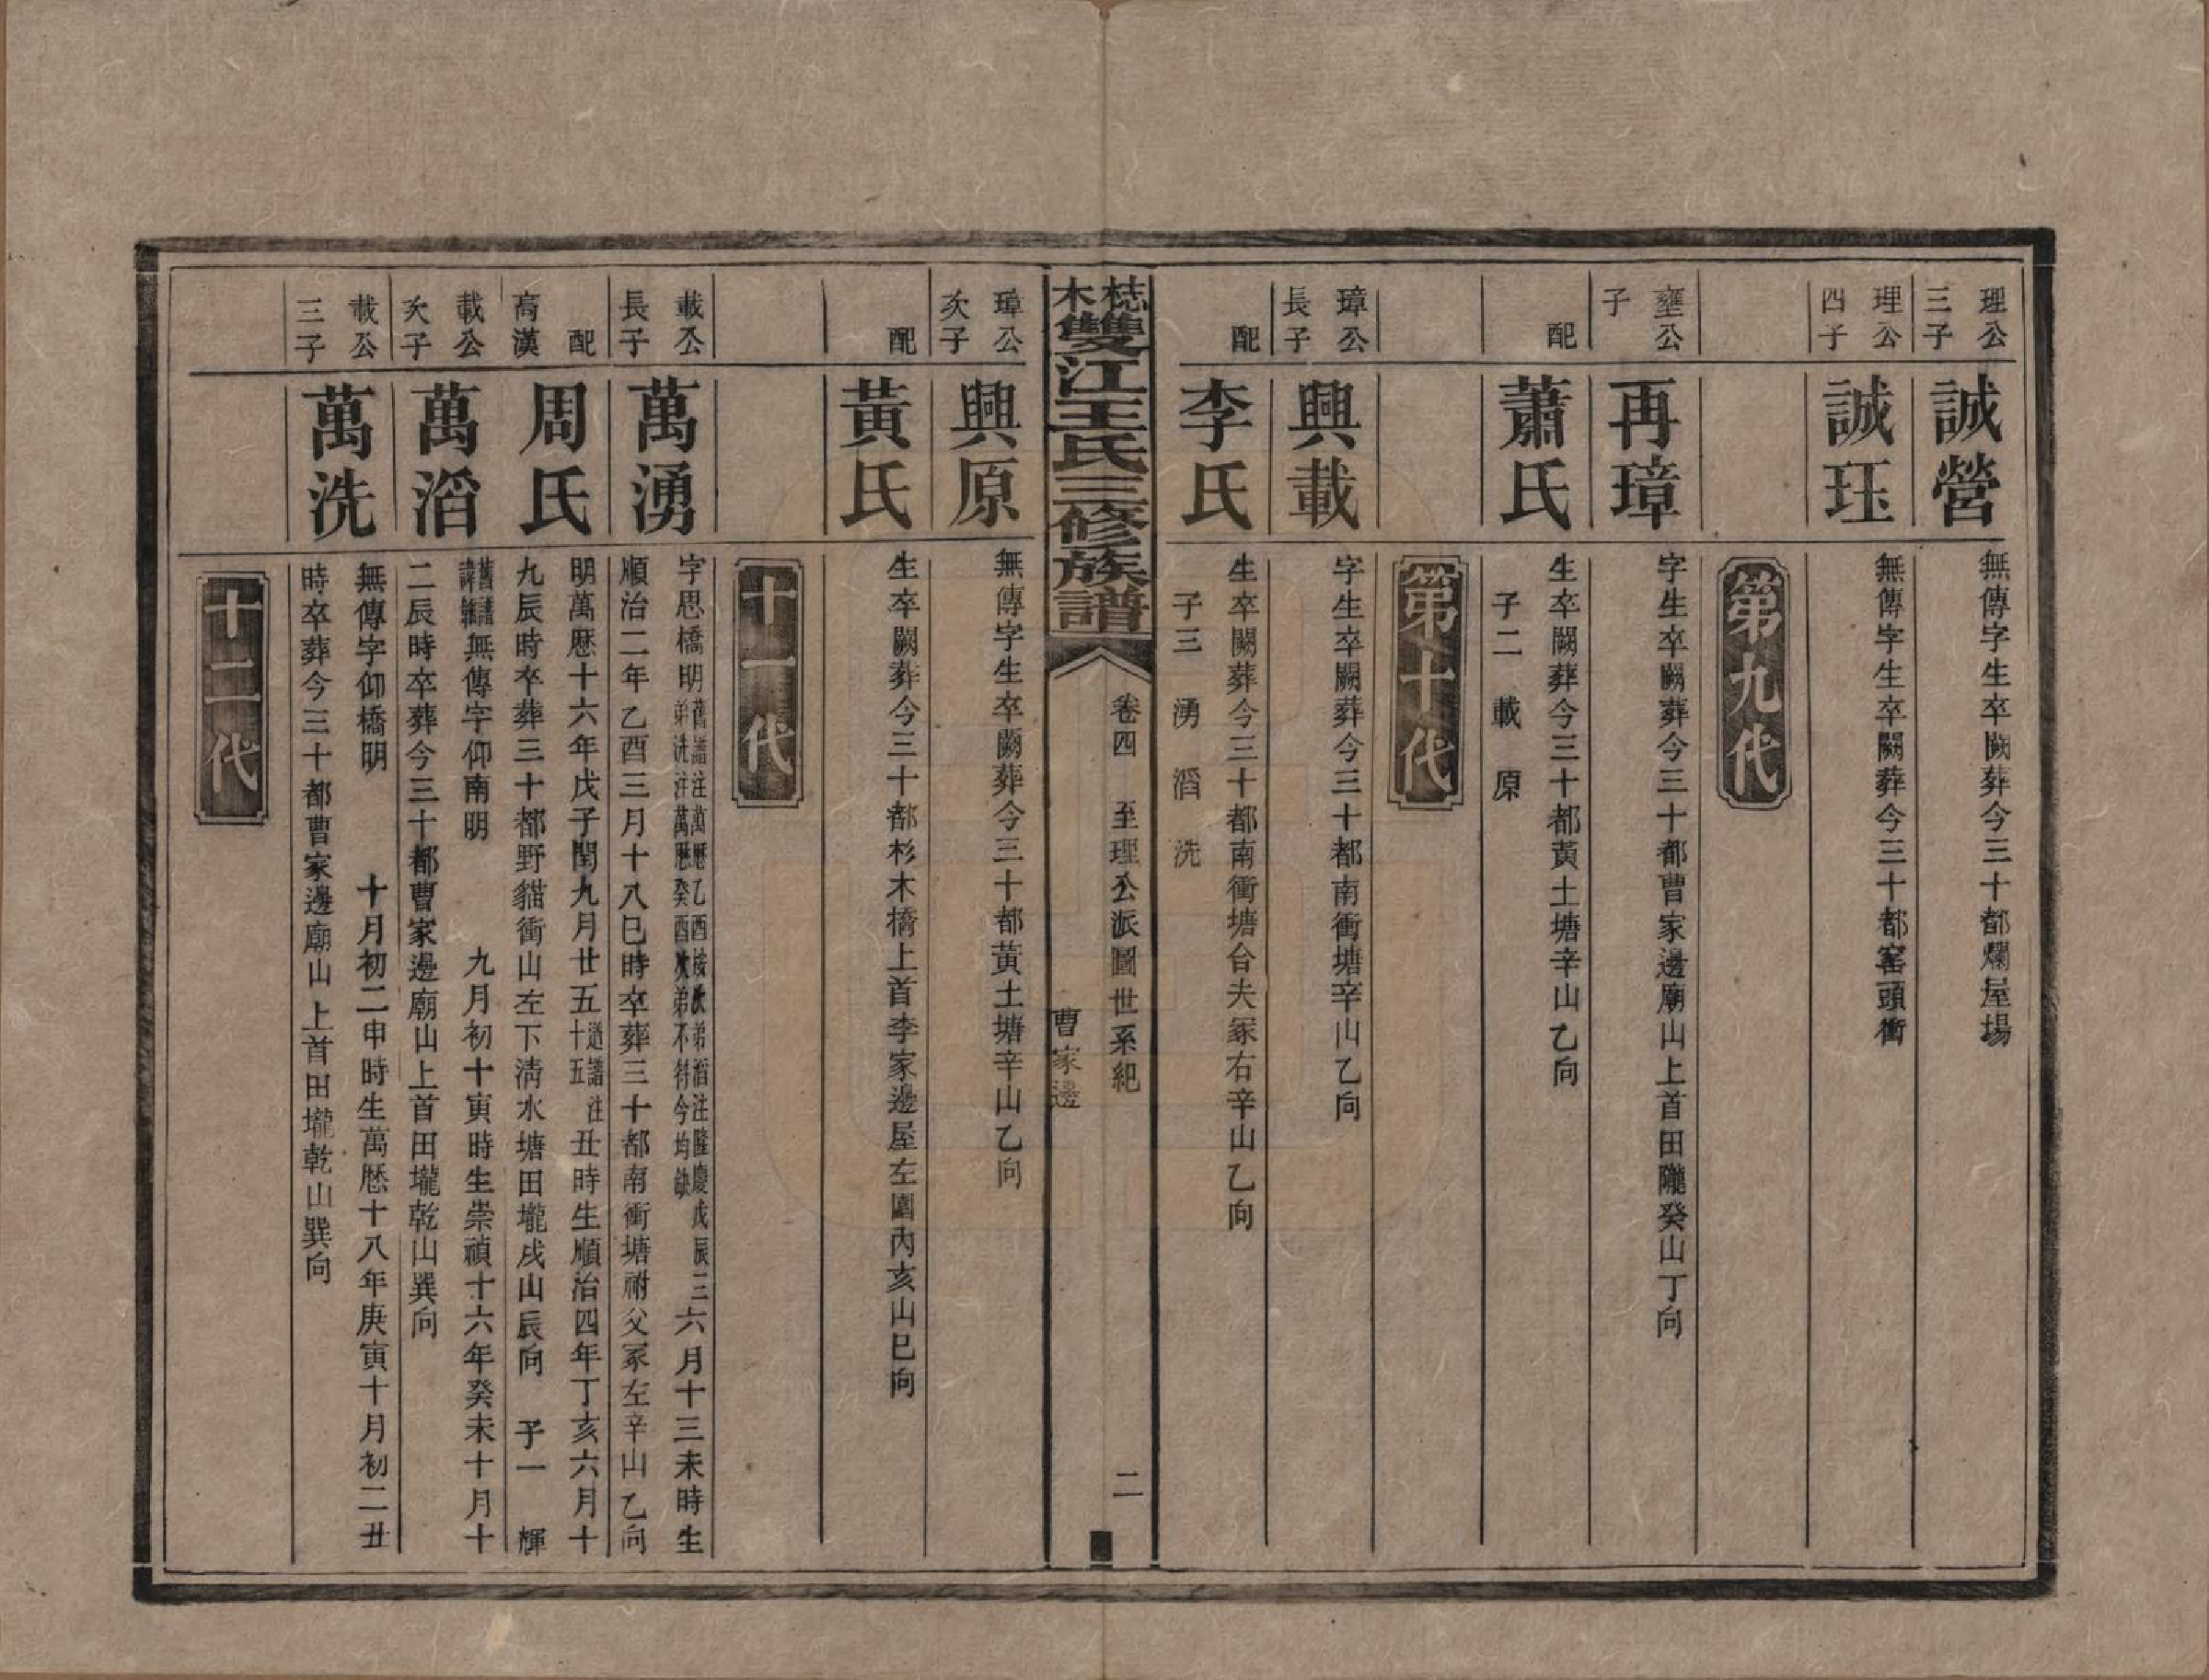 理公
三子
誠營
無傳字生卒闕葬今三十都爛屋場
理公
四子
誠珏
無傳字生卒闕葬今三十都窰頭衝
第九代
壅公
子
再璋
字生卒闕葬今三十都曹家邊廟山上首田隴癸山丁向
配
蕭氏
生卒闕葬今三十都黃土塘辛山乙向
子二 載 原
第十代
璋公
長子
興載
字生卒闕葬今三十都南衝塘辛山乙向
配
李氏
生卒闕葬今三十都南衝塘台夫冢右辛山乙向
子三 湧 滔 洗
梽木雙江王氏三修族譜
卷四 至理公派圖世系紀
曹家邊
二
璋公
次子
興原
無傳字生卒闕葬今三十都黃土塘辛山乙向
配
黃氏
生卒闕葬今三十都杉木橋上首李家邊屋左園內亥山巳向
十一代
載公
長子
萬湧
字思橋明舊譜注萬厯乙酉按次弟滔注隆慶戊辰三
弟洗注萬厯癸酉次弟不符今均缺
六月十三未時生
順治二年乙酉三月十八巳時卒葬三十都南衝塘祔父冢左辛山乙向
配
高漢
周氏
明萬厯十六年戊子閏九月廿五道譜注
十五
丑時生順治四年丁亥六月十
九辰時卒葬三十都野貓衝山左下淸水塘田壠戌山辰向 子一 輝
載公
次子
萬滔
舊譜
無傳字仰南明 九月初十寅時生崇禎十六年癸未十月十
二辰時卒葬今三十都曹家邊廟山上首田壠乾山巽向
載公
三子
萬洗
無傳字仰橋明 十月初二申時生萬厯十八年庚寅十月初二丑
時卒葬今三十都曹家邊廟山上首田壠乾山巽向
十二代